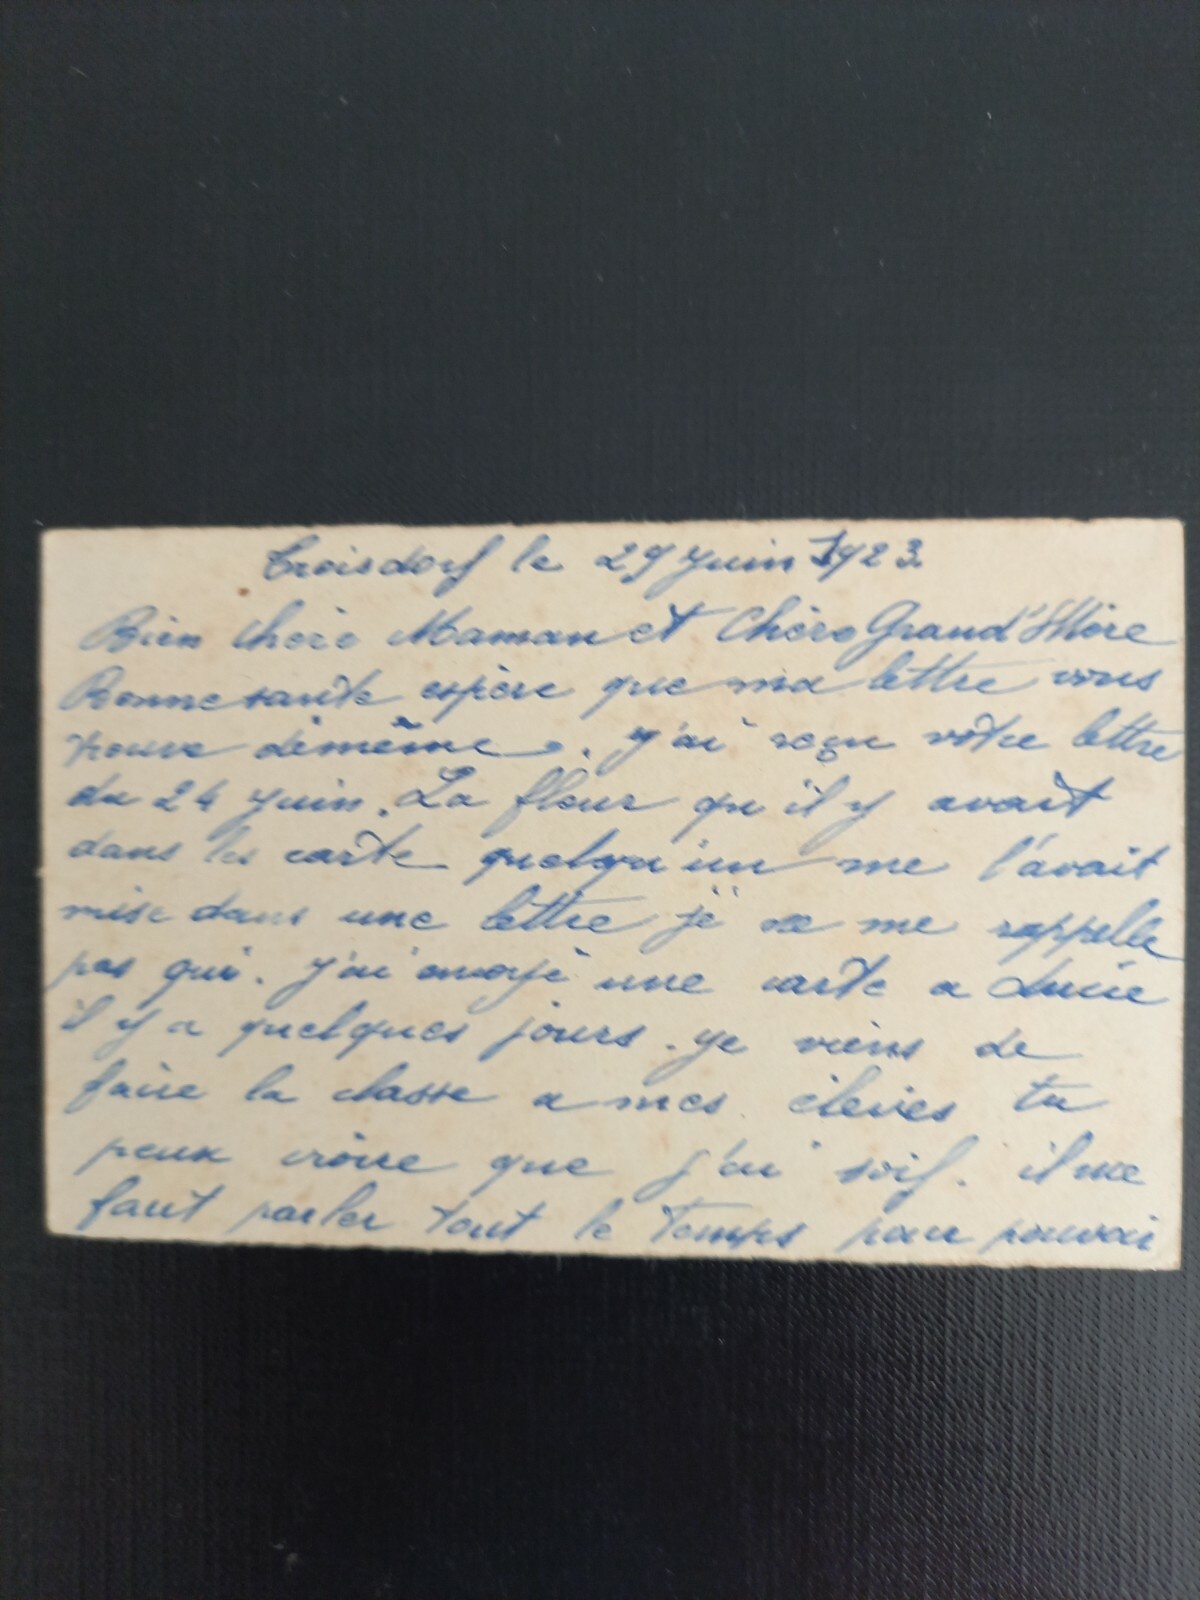 Troisdorf le 29 Juin 1923.
Bien chère Maman et Chère Grand'Mère
Bonne santé espère que ma lettre vous
trouve démême. J'ai reçu vôtre lettre
du 24 Juin. La fleur qu'il y avait
dans les carte quelqu'un me l'avait
mise dans une lettre je ne me rappelle
pas qui. J'ai envoyé une carte a Lucie
il y a quelques jours. Je viens de
faire la classe a mes élèves tu
peux crôire que j'ai soif. il me
faut parler tout le temps pour pouvoir